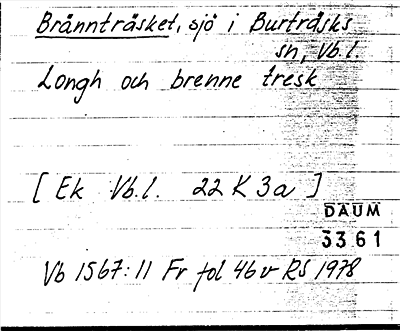 Brännträsket, sjö i Burträsks
sn, Vb.l.
Longh och brenne tresk
[ Ek Vb.l. 22 K 3a ]
DAUM
3361
Vb 1567:11 Fr fol 46v RS 1978